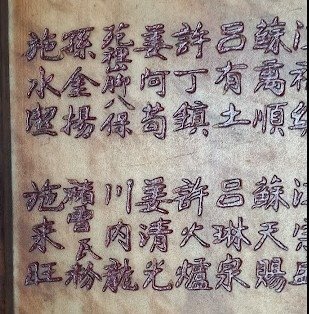 蘇萬順
呂有土
許丁鎮
姜阿荀
脚八保
孫金揚
施水
蘇天賜
呂琳泉
許火爐
姜清光
川內龍
積雪民粉
施來旺